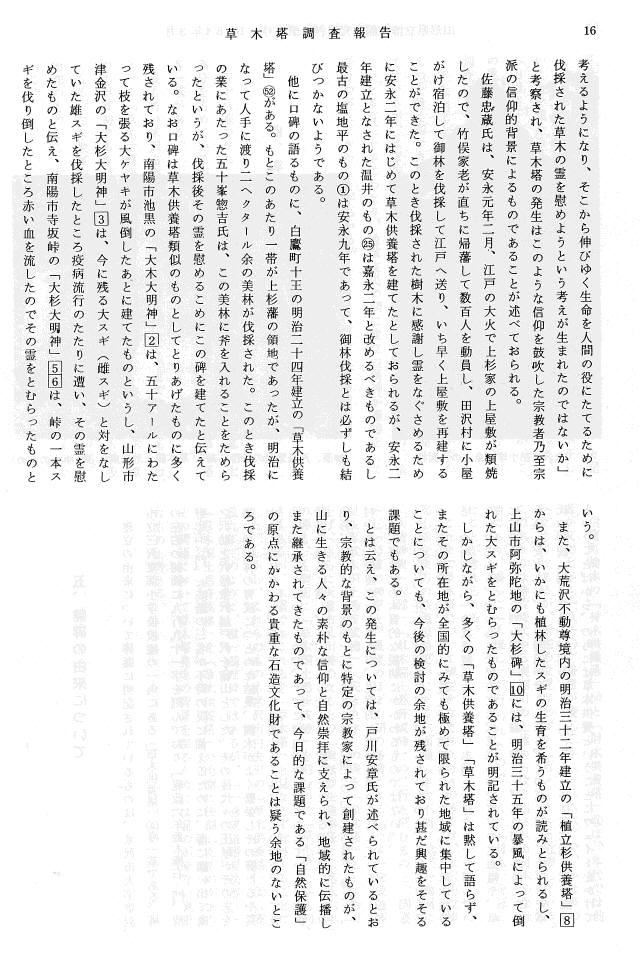 16
草木塔調査報告
考えるようになり、そこから伸びゆく生命を人間の役にたてるために
伐採された草木の霊を慰めようという考えが生まれたのではないか」
と考察され、草木塔の発生はこのような信仰を鼓吹した宗教者乃至宗
派の信仰的背景によるものであることが述べておられる。
佐藤忠蔵氏は、安永元年二月、江戸の大火で上杉家の上屋敷が類焼
したので、竹俣家老が直ちに帰藩して数百人を動員し、田沢村に小屋
がけ宿泊して御林を伐採して江戸へ送り、いち早く上屋敷を再建する
ことができた。このとき伐採された樹木に感謝し霊をなぐさめるため
に安永二年にはじめて草木供養塔を建てたとしておられるが、安永二
年建立となされた温井のもの㉕は嘉永二年と改めるべきものであるし
最古の塩地平のもの①は安永九年であって、御林伐採とは必ずしも結
びつかないようである。
他に口碑の語るものに、白鷹町十王の明治二十四年建立の「草木供養
塔」52がある。もとこのあたり一帯が上杉藩の領地であったが、明治に
なって人手に渡り二ヘクタール余の美林が伐採された。このとき伐採
の業にあたった五十峯惣吉氏は、この美林に斧を入れることをためら
ったというが、伐採後その霊を慰めるこめにこの碑を建てたと伝えて
いる。なお口碑は草木供養塔類似のものとしてとりあげたものに多く
残されており、南陽市池黒の「大木大明神」2は、五十アールにわた
って枝を張る大ケヤキが風倒したあとに建てたものというし、山形市
津金沢の「大杉大明神」3は、今に残る大スギ（雌スギ）と対をなし
ていた雄スギを伐採したところ疫病流行のたたりに遭い、その霊を慰
めたものと伝え、南陽市寺坂峠の「大杉大明神」56は、峠の一本ス
ギを伐り倒したところ赤い血を流したのでその霊をとむらったものと
いう。
また、大荒沢不動尊境内の明治三十二年建立の「植立杉供養塔」8
からは、いかにも植林したスギの生育を希うものが読みとられるし、
上山市阿弥陀地の「大杉碑」10には、明治三十五年の暴風によって倒
れた大スギをとむらったものであることが明記されている。
しかしながら、多くの「草木供養塔」「草木塔」は黙して語らず、
またその所在地が全国的にみても極めて限られた地域に集中している
ことについても、今後の検討の余地が残されており甚だ興趣をそそる
課題でもある。
とは云え、この発生については、戸川安章氏が述べられているとお
り、宗教的な背景のもとに特定の宗教家によって創建されたものが、
山に生きる人々の素朴な信仰と自然崇拝に支えられ、地域的に伝播し
また継承されてきたものであって、今日的な課題である「自然保護」
の原点にかかわる貴重な石造文化財であることは疑う余地のないとこ
ろである。